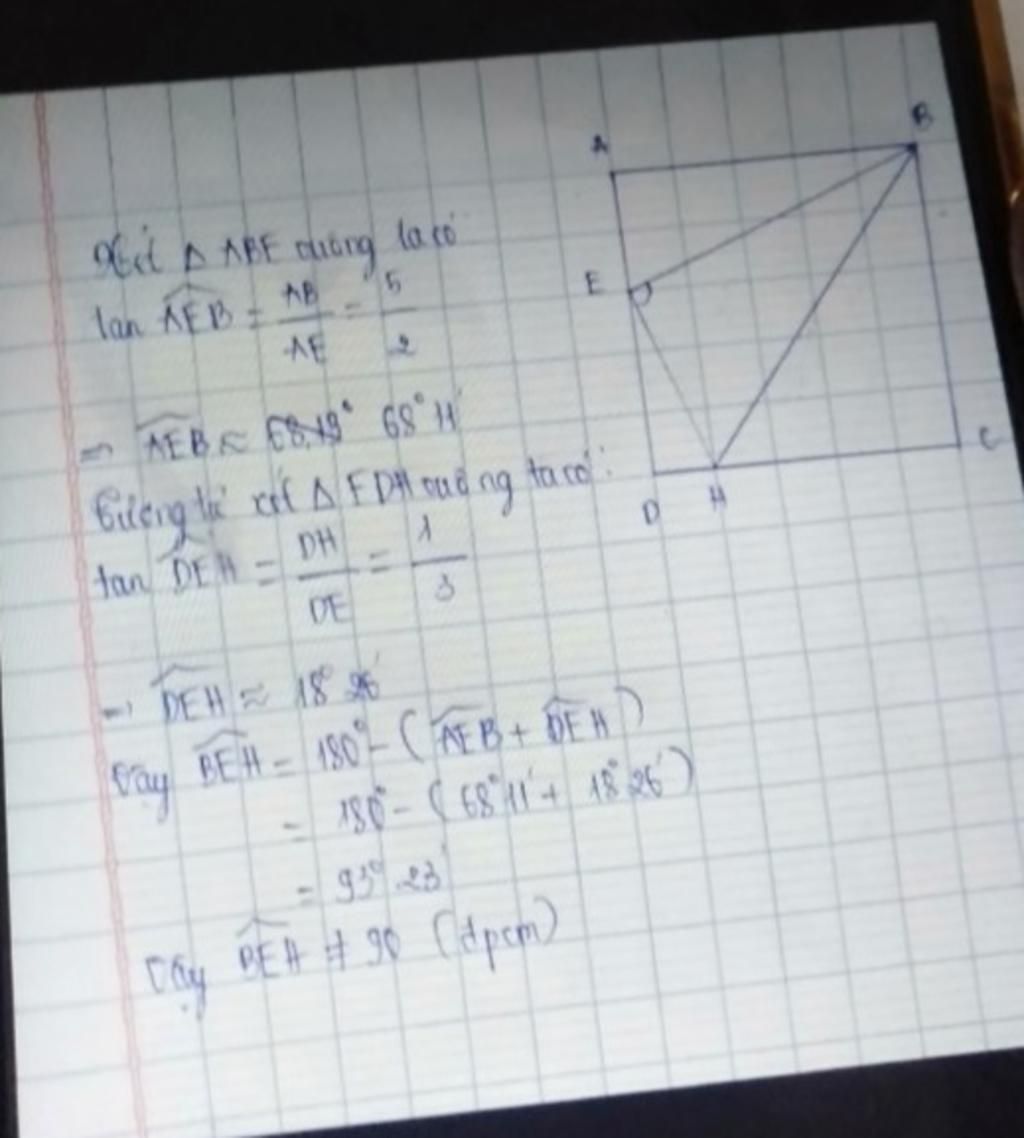 Xét Δ ABE vuông ta có
tan AEB = AB/AE = 5/2
⇒ AEB ≈ 68,19° 68°11'
Tương tự xét Δ EDH vuông ta có:
tan DEH = DH/DE = 1/3
⇒ DEH ≈ 18°26'
Vậy BEH = 180° - (AEB + DEH)
= 180° - (68°11' + 18°26')
= 93°23'
Vậy BEH ≠ 90 (đpcm)
A
B
E
D
H
C